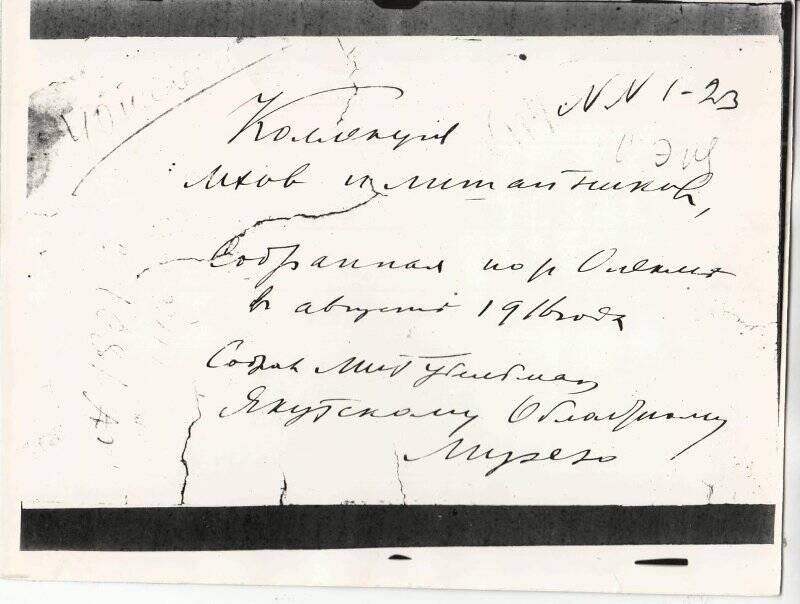 NN 1-23
Коллекция
мхов и лишайников,
Собранная по р Олекме
в августе 1916 года
Собрал
Якутскому Областному
Музею